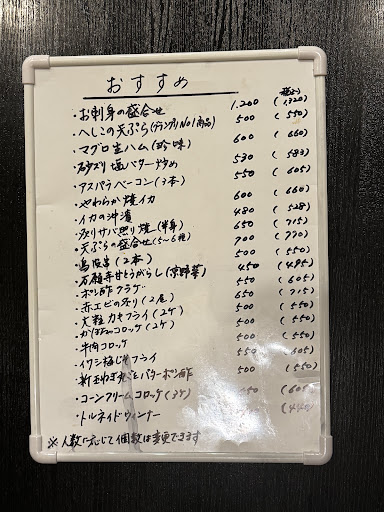 おすすめ
(税込)
・お刺身の盛合せ 1,200 (1,320)
・へしこの天ぷら(グランプリNo1商品) 500 (550)
・マグロ生ハム(珍味) 600 (660)
・砂ズリ塩バター炒め 530 (583)
・アスパラベーコン(3本) 550 (605)
・やわらか焼イカ 600 (660)
・イカの沖漬 480 (528)
・炙りサバ照り焼(半身) 650 (715)
・天ぷらの盛合せ(5〜6種) 700 (770)
・鳥皮串(2本) 500 (550)
・万願寺甘とうがらし(京野菜) 450 (495)
・ポン酢クラゲ 550 (605)
・赤エビの炙り(2尾) 650 (715)
・大粒カキフライ(2ケ) 500 (550)
・かぼちゃコロッケ(2ケ) 500 (550)
・牛肉コロッケ 500 (550)
・イワシ梅じそフライ 550 (605)
・新玉ねぎ バターポン酢 500 (550)
・コーンクリームコロッケ(3ケ) (605)
・トルネイドウィンナー (440)
※人数に応じて個数は変更できます